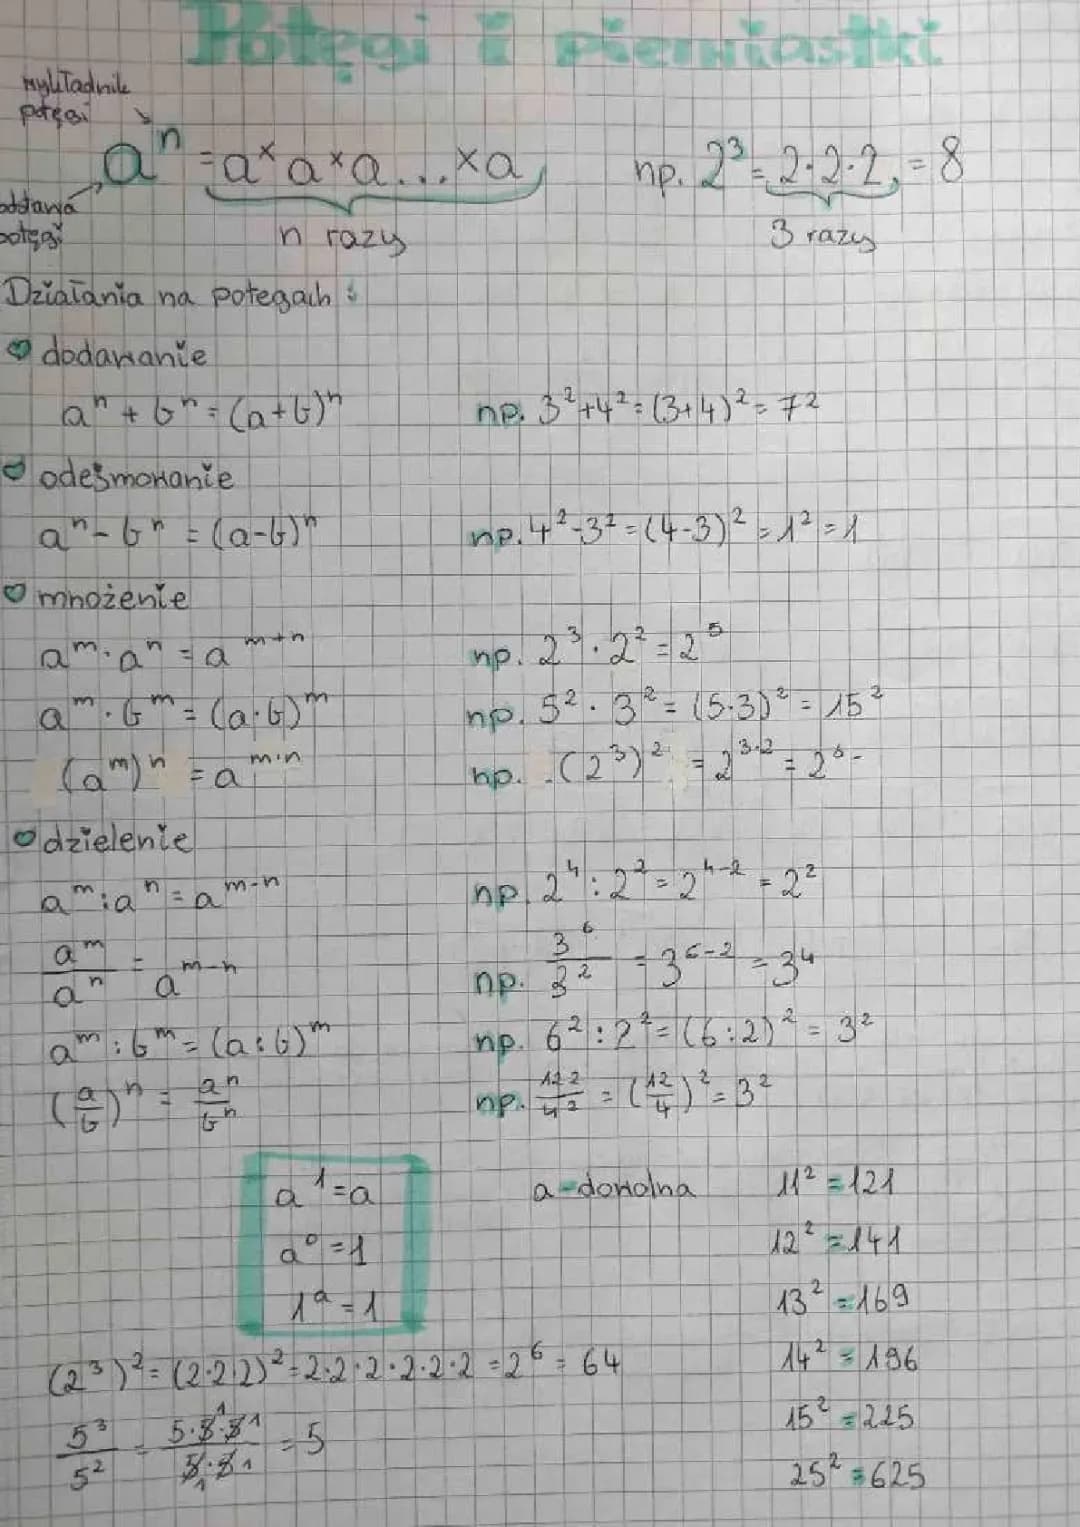 Potęgi i pierwiastki
wykładnik
potęgi
aⁿ = a × a × a ... × a np. 2³ = 2·2·2 = 8
potęgi
n razy 3 razy
Działania na potęgach:
dodawanie
aⁿ + bⁿ = (a+b)ⁿ np. 3²+4² = (3+4)² = 7²
odejmowanie
aⁿ - bⁿ = (a-b)ⁿ np. 4²-3² = (4-3)² = 1² = 1
mnożenie
aᵐ · aⁿ = aᵐ⁺ⁿ np. 2³ · 2² = 2⁵
aᵐ · bᵐ = (a·b)ᵐ np. 5² · 3² = (5·3)² = 15²
(aᵐ)ⁿ = a^(m·n) np. (2³)² = 2^(3·2) = 2⁶
dzielenie
aᵐ : aⁿ = aᵐ⁻ⁿ np. 2⁴ : 2² = 2⁴⁻² = 2²
aᵐ/aⁿ = aᵐ⁻ⁿ np. 3⁶/3² = 3⁶⁻² = 3⁴
aᵐ : bᵐ = (a:b)ᵐ np. 6² : 2² = (6:2)² = 3²
(a/b)ⁿ = aⁿ/bⁿ np. 12²/4² = (12/4)² = 3²
a¹ = a a - dowolna 11² = 121
a⁰ = 1 12² = 141
1ᵃ = 1 13² = 169
(2³)² = (2·2·2)² = 2·2·2·2·2·2 = 2⁶ = 64 14² = 196
5³/5² = 5·5·5/5·5 = 5 15² = 225
25² = 625